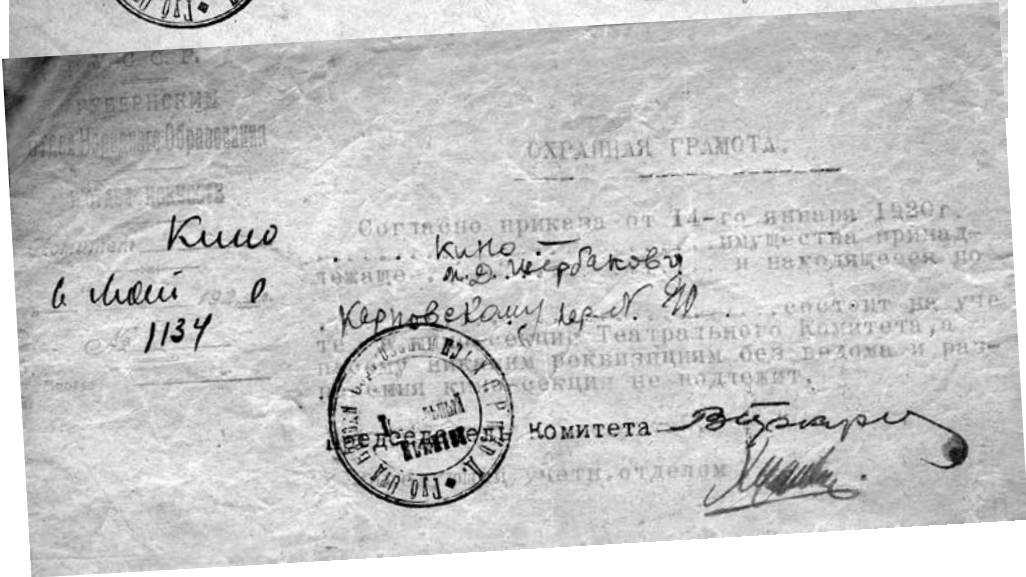 У.С.С.Р.
ГУБЕРНСКИЙ
Отдел Народного Образования
Кино
6 Мая 192 0
№ 1134
ОХРАННАЯ ГРАМОТА.
Согласно приказа от 14-го января 1920г.
Кино имущества принад-
лежаще и. Д. Щербакову и находящееся по
Карповскому пер. N. состоит на уче
те секции Театрального Комитета, а
посему никаким реквизициям без ведома и раз-
решения кино-секции не подлежит.
Председатель Комитета
учетн. отделом